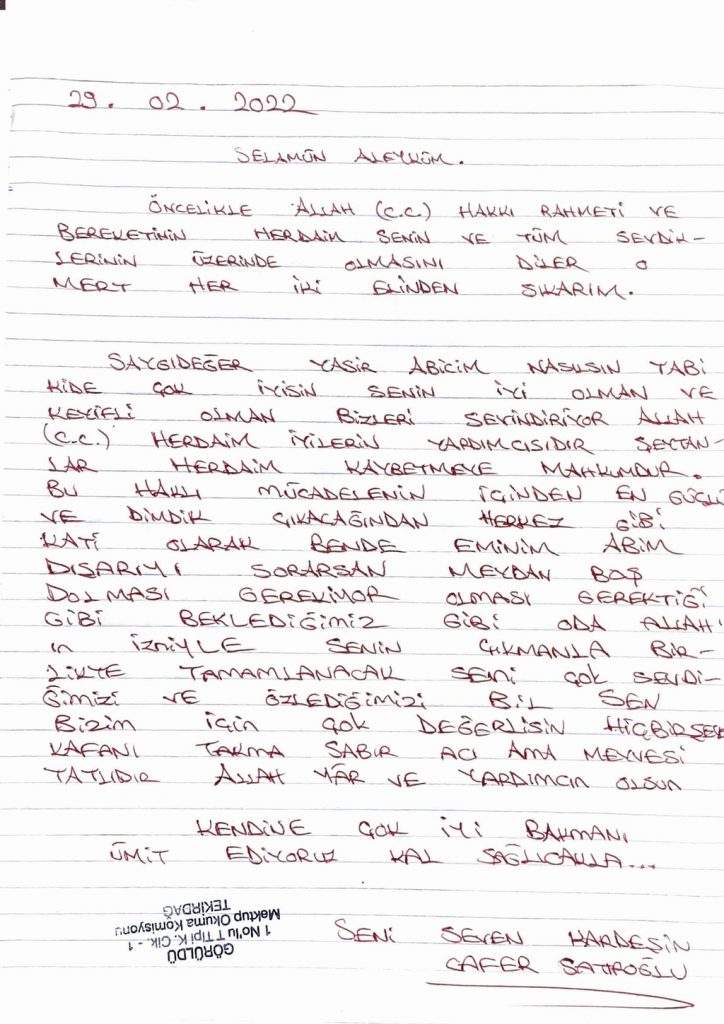 29. 02. 2022
SELAMÜN ALEYKÜM.
ÖNCELİKLE ALLAH (C.C.) HAKKI RAHMETİ VE
BEREKETİNİN HERDAİM SENİN VE TÜM SEVDİK-
LERİNİN ÜZERİNDE OLMASINI DİLER O
MERT HER İKİ ELİNDEN SIKARIM.
SAYGIDEĞER YASİR ABİCİM NASILSIN TABİ
KİDE ÇOK İYİSİN SENİN İYİ OLMAN VE
KEYİFLİ OLMAN BİZLERİ SEVİNDİRİYOR ALLAH
(C.C.) HERDAİM İYİLERİN YARDIMCISIDIR ŞEYTAN-
LAR HERDAİM KAYBETMEYE MAHKUMDUR.
BU HAKLI MÜCADELENİN İÇİNDEN EN GÜÇLÜ
VE DİMDİK ÇIKACAĞINDAN HERKEZ GİBİ
KATİ OLARAK BENDE EMİNİM ABİM
DIŞARIYI SORARSAN MEYDAN BOŞ
DOLMASI GEREKİYOR OLMASI GEREKTİĞİ
GİBİ BEKLEDİĞİMİZ GİBİ ODA ALLAH'
IN İZNİYLE SENİN ÇIKMANLA BİR-
LİKTE TAMAMLANACAK SENİ ÇOK SEVDİ-
ĞİMİZİ VE ÖZLEDİĞİMİZİ BİL SEN
BİZİM İÇİN ÇOK DEĞERLİSİN HİÇBİRŞEYE
KAFANI TAKMA SABIR ACI AMA MEYVESİ
TATLIDIR ALLAH YÂR VE YARDIMCIN OLSUN
KENDİNE ÇOK İYİ BAKMANI
ÜMİT EDİYORUZ KAL SAĞLICAKLA...
SENİ SEVEN KARDEŞİN
CAFER SATIROĞLU
GÖRÜLDÜ
1 No'lu T Tipi K. Cik. - 1
Mektup Okuma Komisyonu
TEKİRDAĞ